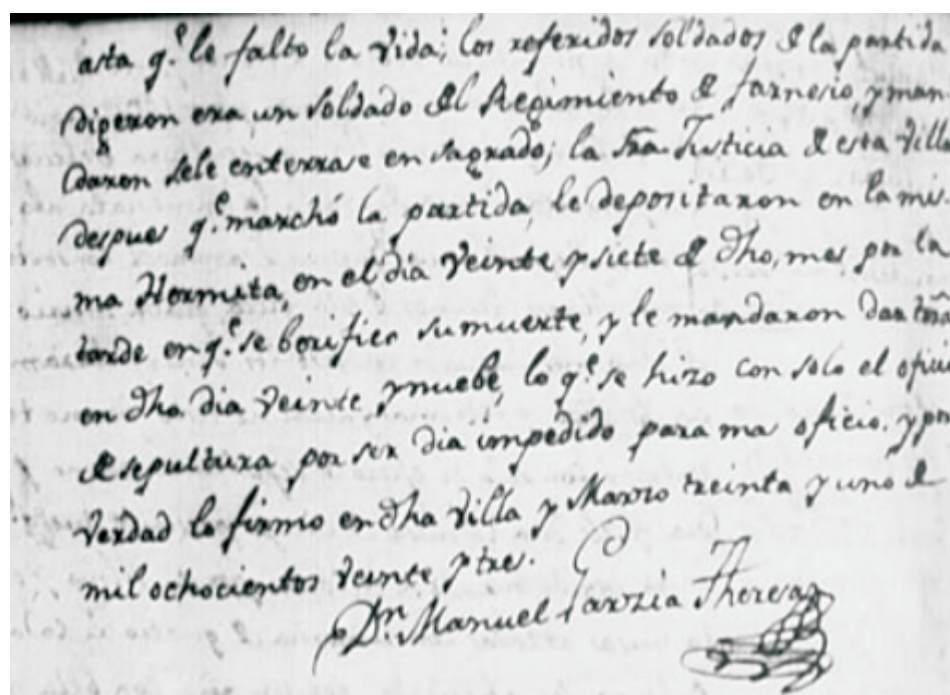 asta q.e le falto la vida; los referidos soldados de la partida
digeron era un soldado del Regimiento de farnesio, y man-
daron sele enterrase en sagrado; la Justicia de esta villa
despues q.e marcho la partida, le depositaron en la mis-
ma Hermita, en el dia veinte y siete de dho, mes por la
tarde en q.e se berifico su muerte, y le mandaron dar
en dho dia veinte, y nuebe, lo q.e se hizo con solo el oficio
de sepultura por ser dia impedido para mas oficio. y por
verdad lo firmo en dha villa y Marzo treinta y uno de
mil ochocientos veinte y tres.
Dn Manuel Garzia Theresa